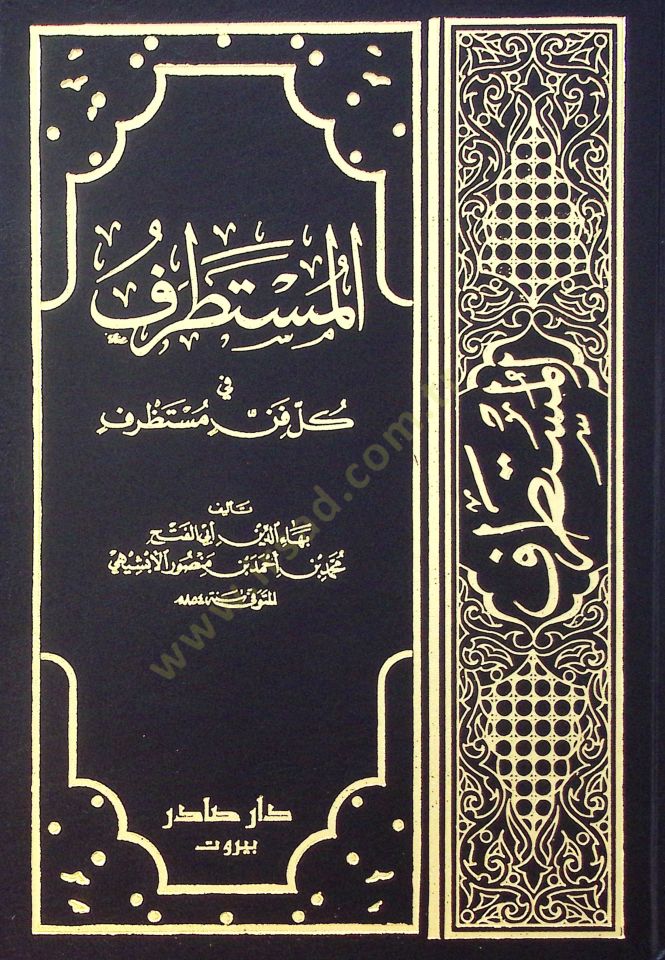 المُستَطرَفُ
في
كُلِّ فَنٍّ مُستَظرَفٍ
تأليف
بهاء الدين أبي الفتح
محمّد بن أحمد بن منصور الأبشيهي
المتوفى سنة ٨٥٤هـ
دار صادر
بيروت
المُستَطرَف